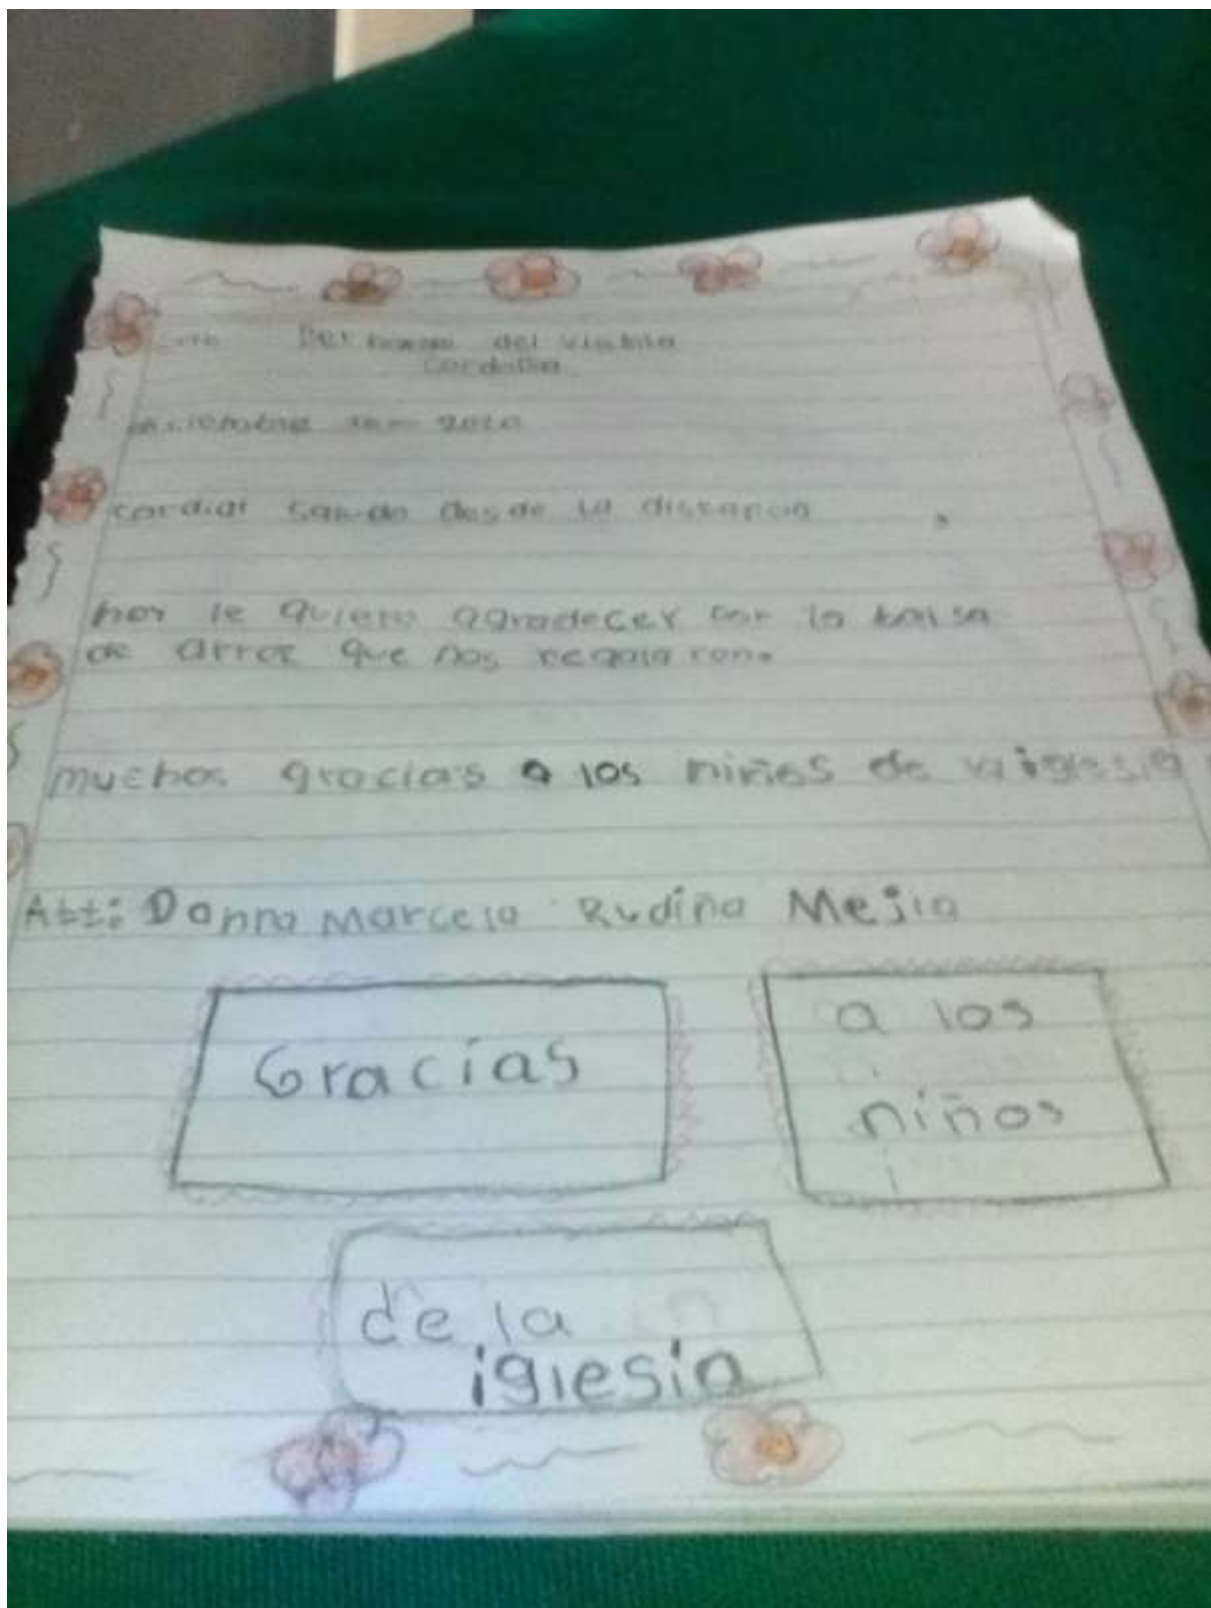 del viento
diciembre 2020
cordial saludo desde la distancia
hoy le quiero agradecer por la bolsa
de arroz que nos regalaron.
muchos gracias a los niños de la iglesia
Att: Danna Marcela Rudiño Mejia
Gracias
a los
niños
de la
iglesia